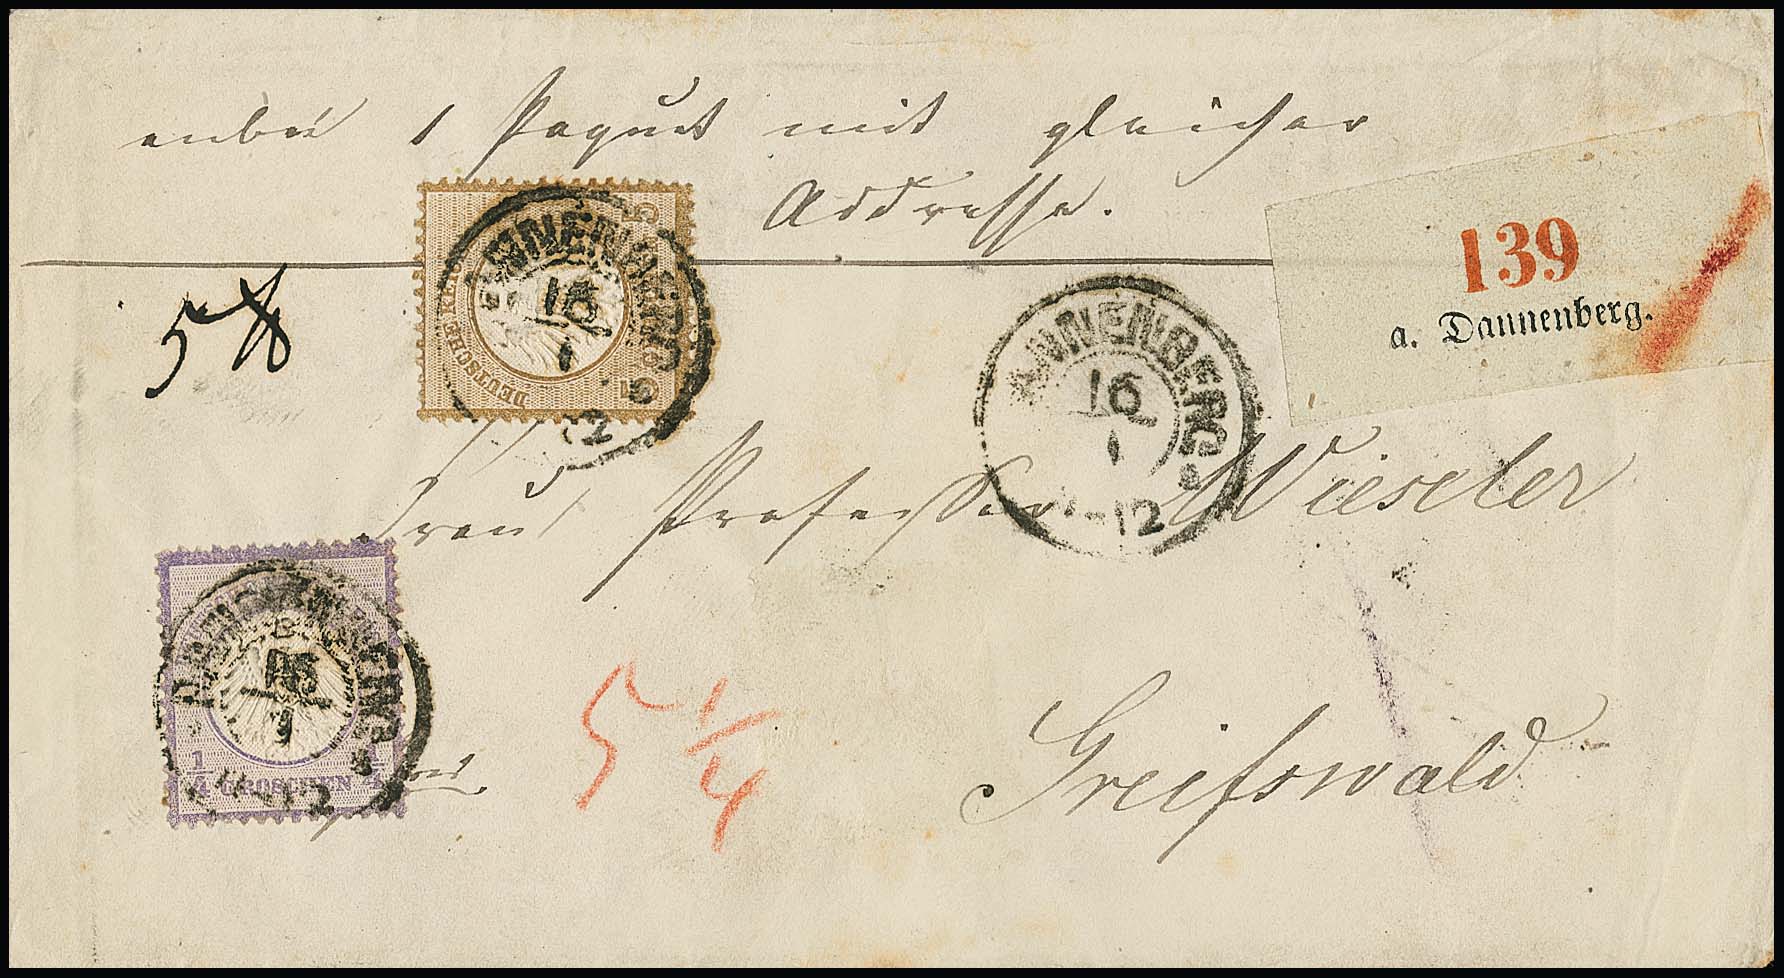 anbei 1 Paquet mit gleicher
Addresse.
139
a. Dannenberg.
5
DEUTSCHE REICHS
5
5
DANNENBERG
16
1
12
DANNENBERG
16
1
-12
Frau Professor Wieseler
DANNENBERG
16
1
11-12
1/4 GROSCHEN 1/4
5 1/4
Greifswald